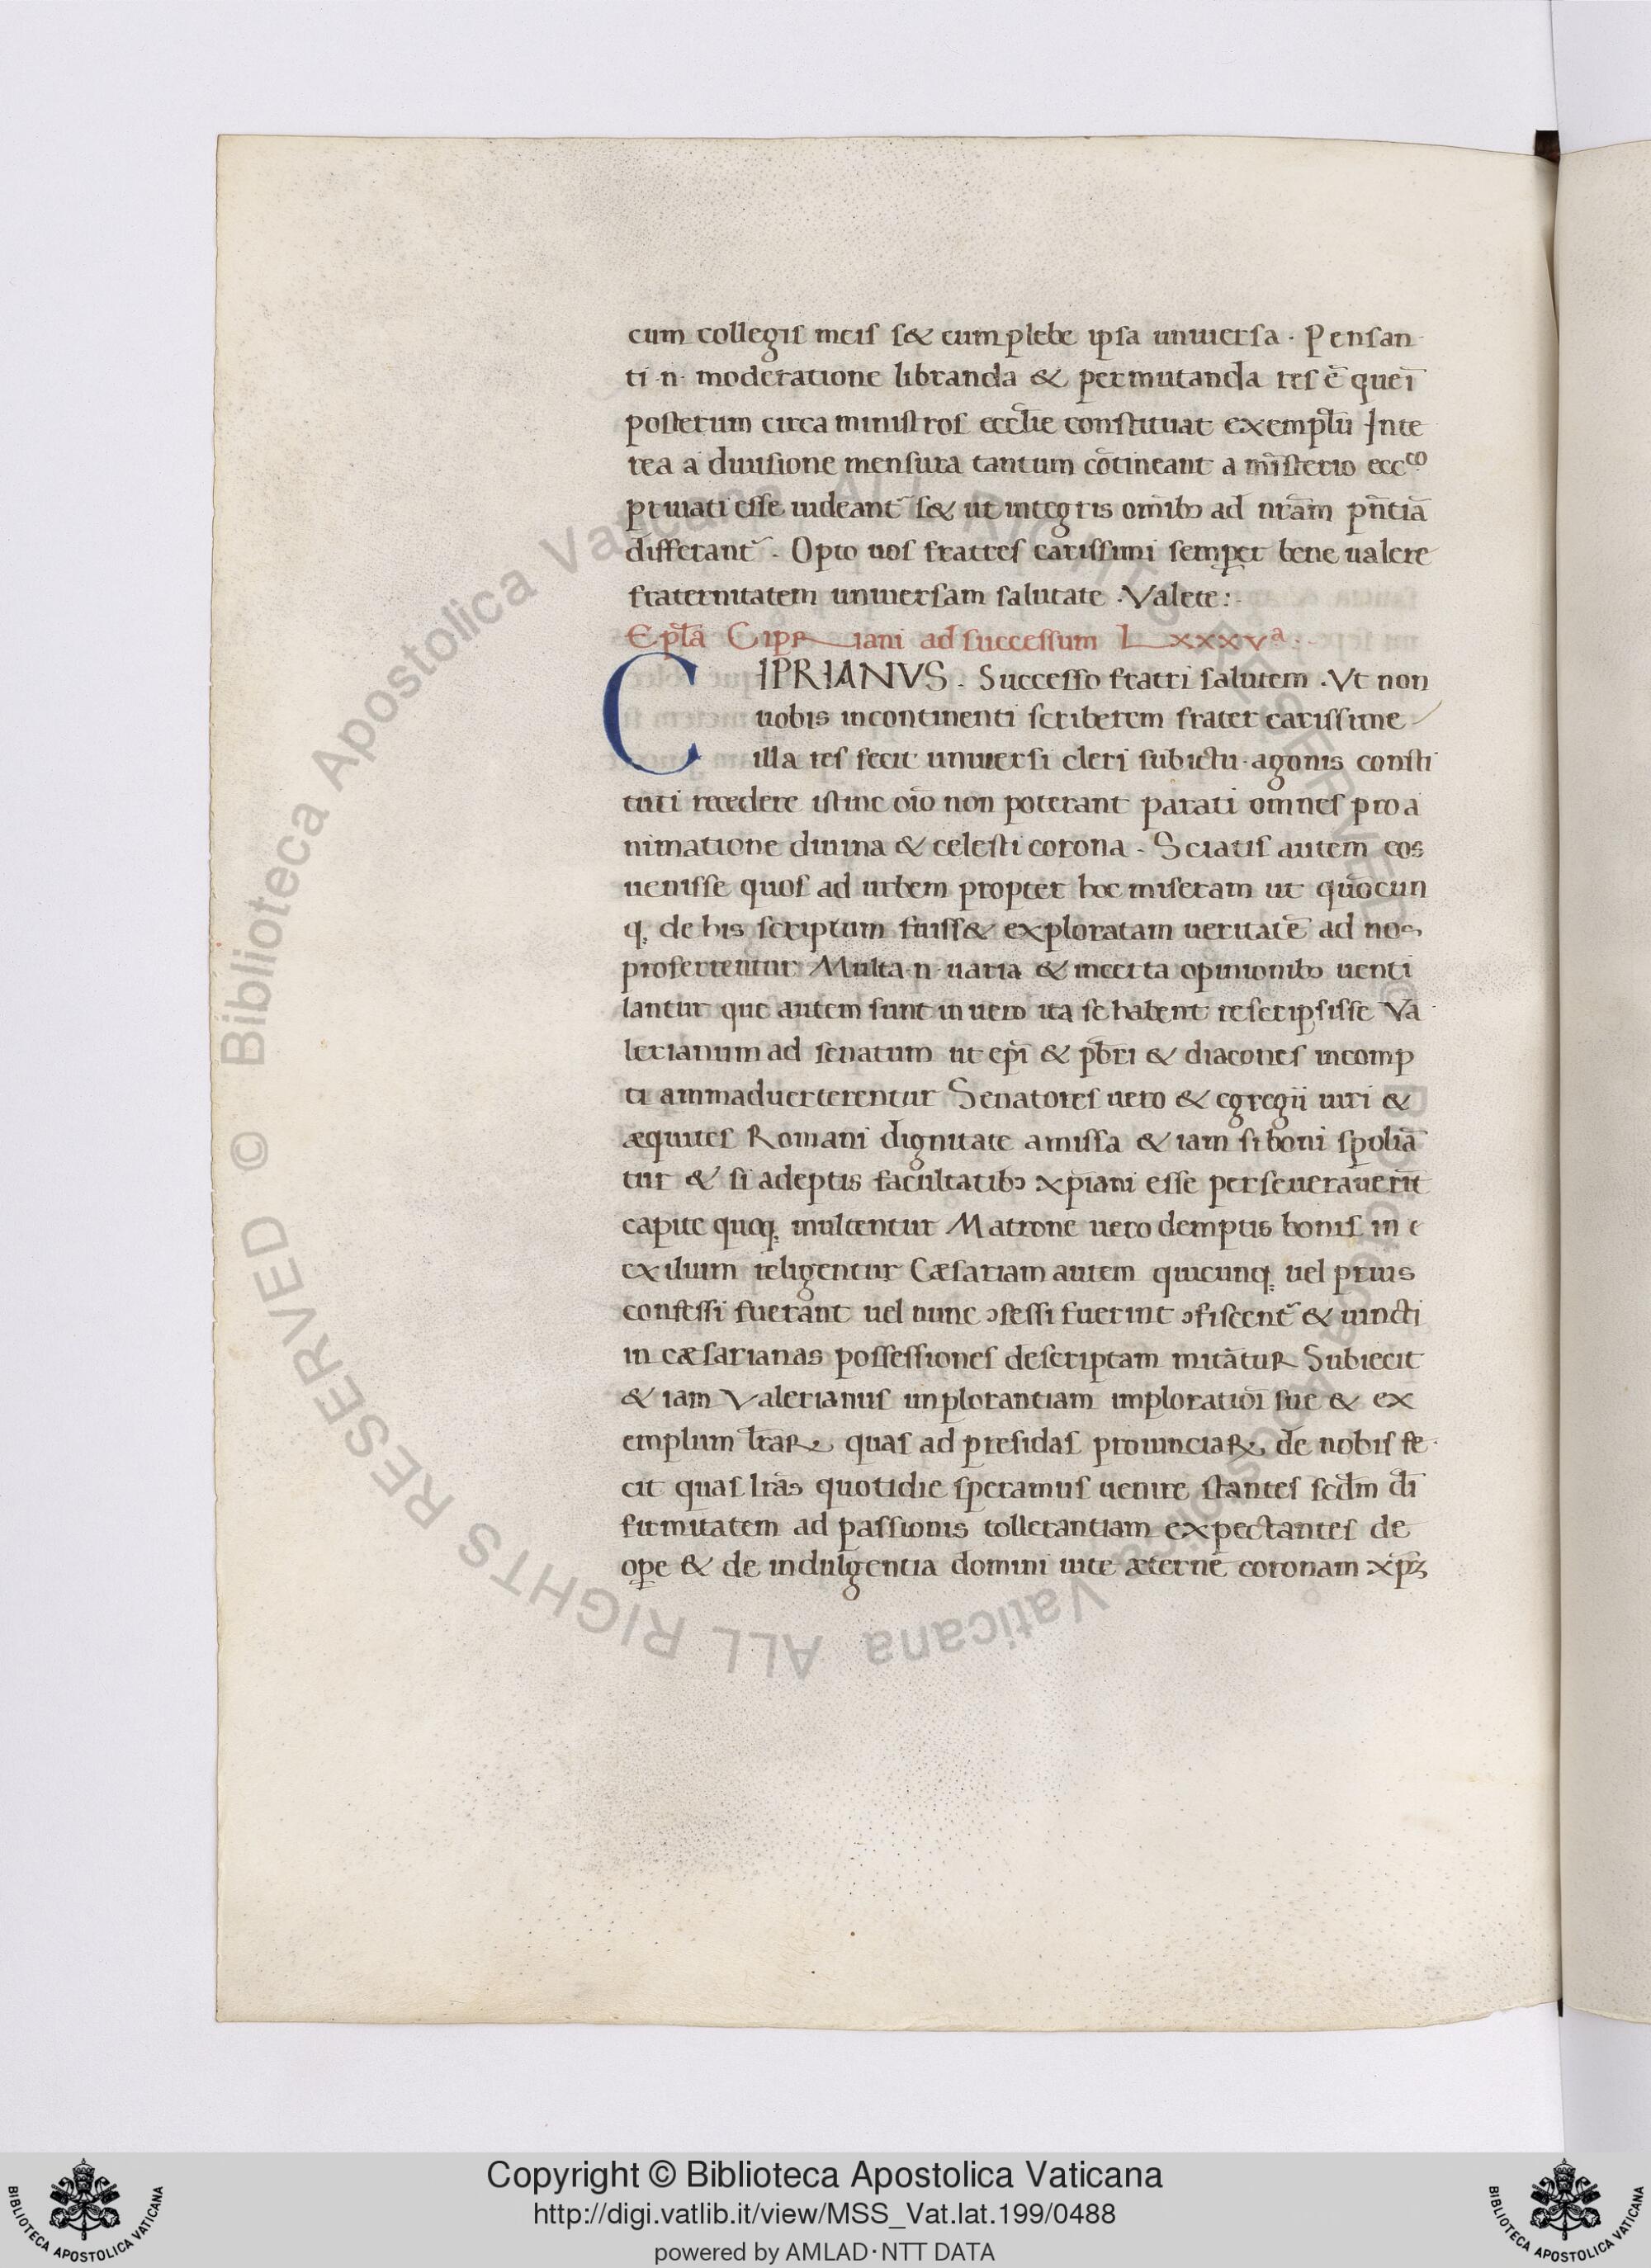 cum collegis meis s& cum plebe ipsa uniuersa · Pensan
ti ·n· moderatione libranda & permutanda res ē que ī
posterum circa ministros eccl̄ie constituat exemplū Inte
rea a diuisione mensura tantum cōtineant a mīsterio ecc
priuati esse uideant᷑ s& ut integris omībꝫ ad nr̄am pn̄tiā
differant᷑ · Opto uos fratres carissimi semper bene ualere
fraternitatem uniuersam salutate · Valete :
Epl̄a Cipriani ad successum Lxxxvª ·
CIPRIANVS · Successo fratri salutem · Vt non
uobis incontinenti scriberem frater carissime
illa res fecit uniuersi cleri sub ictu · agonis consti
tuti recedere istinc oīo non poterant parati omnes pro a
nimatione diuina & celesti corona · Sciatis autem eos
uenisse quos ad urbem propter hoc miseram ut quōcun
qꝫ de his scriptum fuiss& exploratam ueritatē ad nos
proferrentur Multa ·n· uaria & incerta opinionibꝫ uenti
lantur que autem sunt in uero ita se habent rescripsisse Va
lerianum ad senatum ut ep̄i & pb̄ri & diacones incomp
ti ammaduerterentur Senatores uero & egregii uiri &
æquites Romani dignitate amissa & iam si boni spoliā
tur & si adeptis facultatibꝫ xp̄iani esse perseuerauerīt
capite quoqꝫ multentur Matrone uero demptis bonis in e
exilium religentur Cæsariam autem quicunqꝫ uel prius
confessi fuerant uel nunc ↄfessi fuerint ↄfiscent᷑ & uincti
in cæsarianas possessiones descriptam mitātur Subiecit
& iam Valerianus implorantiam imploratiōi sue & ex
emplum lr̄aꝝ quas ad presidas prouinciaꝝ de nobis fe
cit quas lr̄as quotidie speramus uenire stantes scdm̄ d̄i
firmitatem ad passionis tollerantiam expectantes de
ope & de indulgentia domini uite æterne coronam xp̄ꝫ
© Biblioteca Apostolica Vaticana ALL RIGHTS RESERVED © Biblioteca Apostolica Vaticana ALL RIGHTS RESERVED
Copyright © Biblioteca Apostolica Vaticana
http://digi.vatlib.it/view/MSS_Vat.lat.199/0488
powered by AMLAD·NTT DATA
BIBLIOTECA APOSTOLICA VATICANA
BIBLIOTECA APOSTOLICA VATICANA